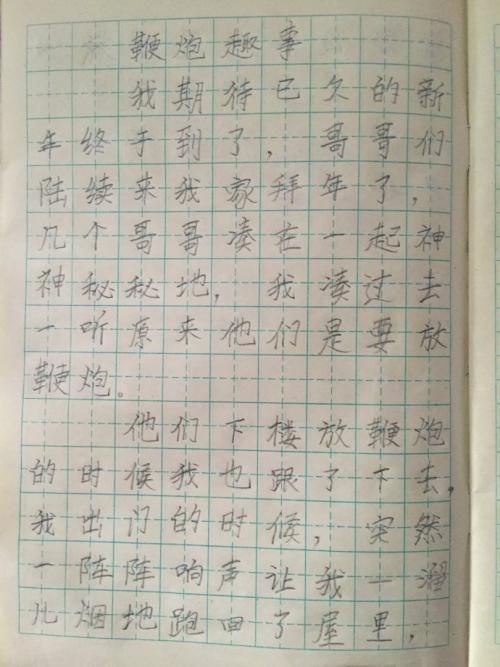 鞭炮趣事
我期待已久的新
年终于到了，哥哥们
陆续来我家拜年了，
几个哥哥凑在一起神
神秘秘地，我凑过去
一听原来他们是要放
鞭炮。
他们下楼放鞭炮
的时候我也跟了下去，
我出门的时候，突然
一阵阵响声让我一溜
儿烟地跑回了屋里，